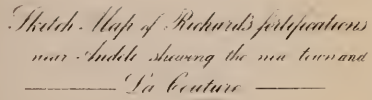 Sketch Map of Richard's fortifications
near Andeli shewing the new town and
La Couture